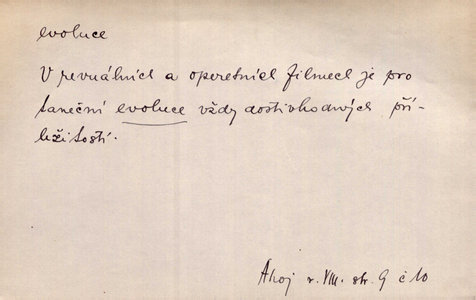 evoluce
V revuálních a operetních filmech je pro
taneční evoluce vždy dosti vhodných pří-
ležitostí.
Ahoj r. VIII. str. 9 č 10